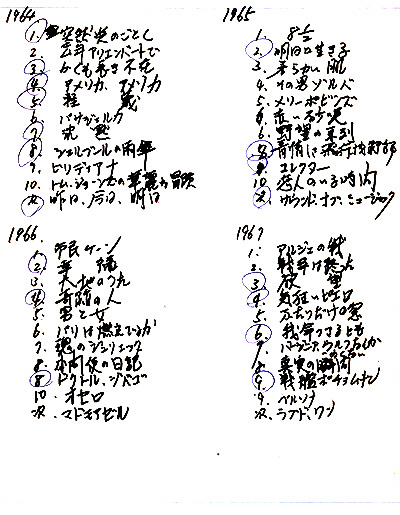 1964
1. 突然炎のごとく
2. 去年マリエンバートで
3. かくも長き不在
4. アメリカ、アメリカ
5. 軽蔑
6. パサジェルカ
7. 沈黙
8. シェルブールの雨傘
9. ビリディアナ
10. トム・ジョーンズの華麗な冒険
次. 昨日、今日、明日
1965
1. 8 1/2
2. 明日に生きる
3. 柔らかい肌
4. その男ゾルバ
5. メリーポピンズ
6. 赤い砂漠
6. 野望の系列
9. コレクター
10. 恋人のいる時間
次. サウンド・オブ・ミュージック
1966
1. 市民ケーン
2. 幸福
3. 大地のうた
4. 奇跡の人
5. 男と女
6. パリは燃えているか
7. 魂のジュリエッタ
8. 小間使の日記
8. ドクトル、ジバゴ
10. オセロ
次. マドモアゼル
1967
1. アルジェの戦い
2. 戦争は終った
3. 欲望
4. 気狂いピエロ
8. 真実の瞬間
9. 戦艦ポチョムキン
9. ペルソナ
次. ラブド、ワン